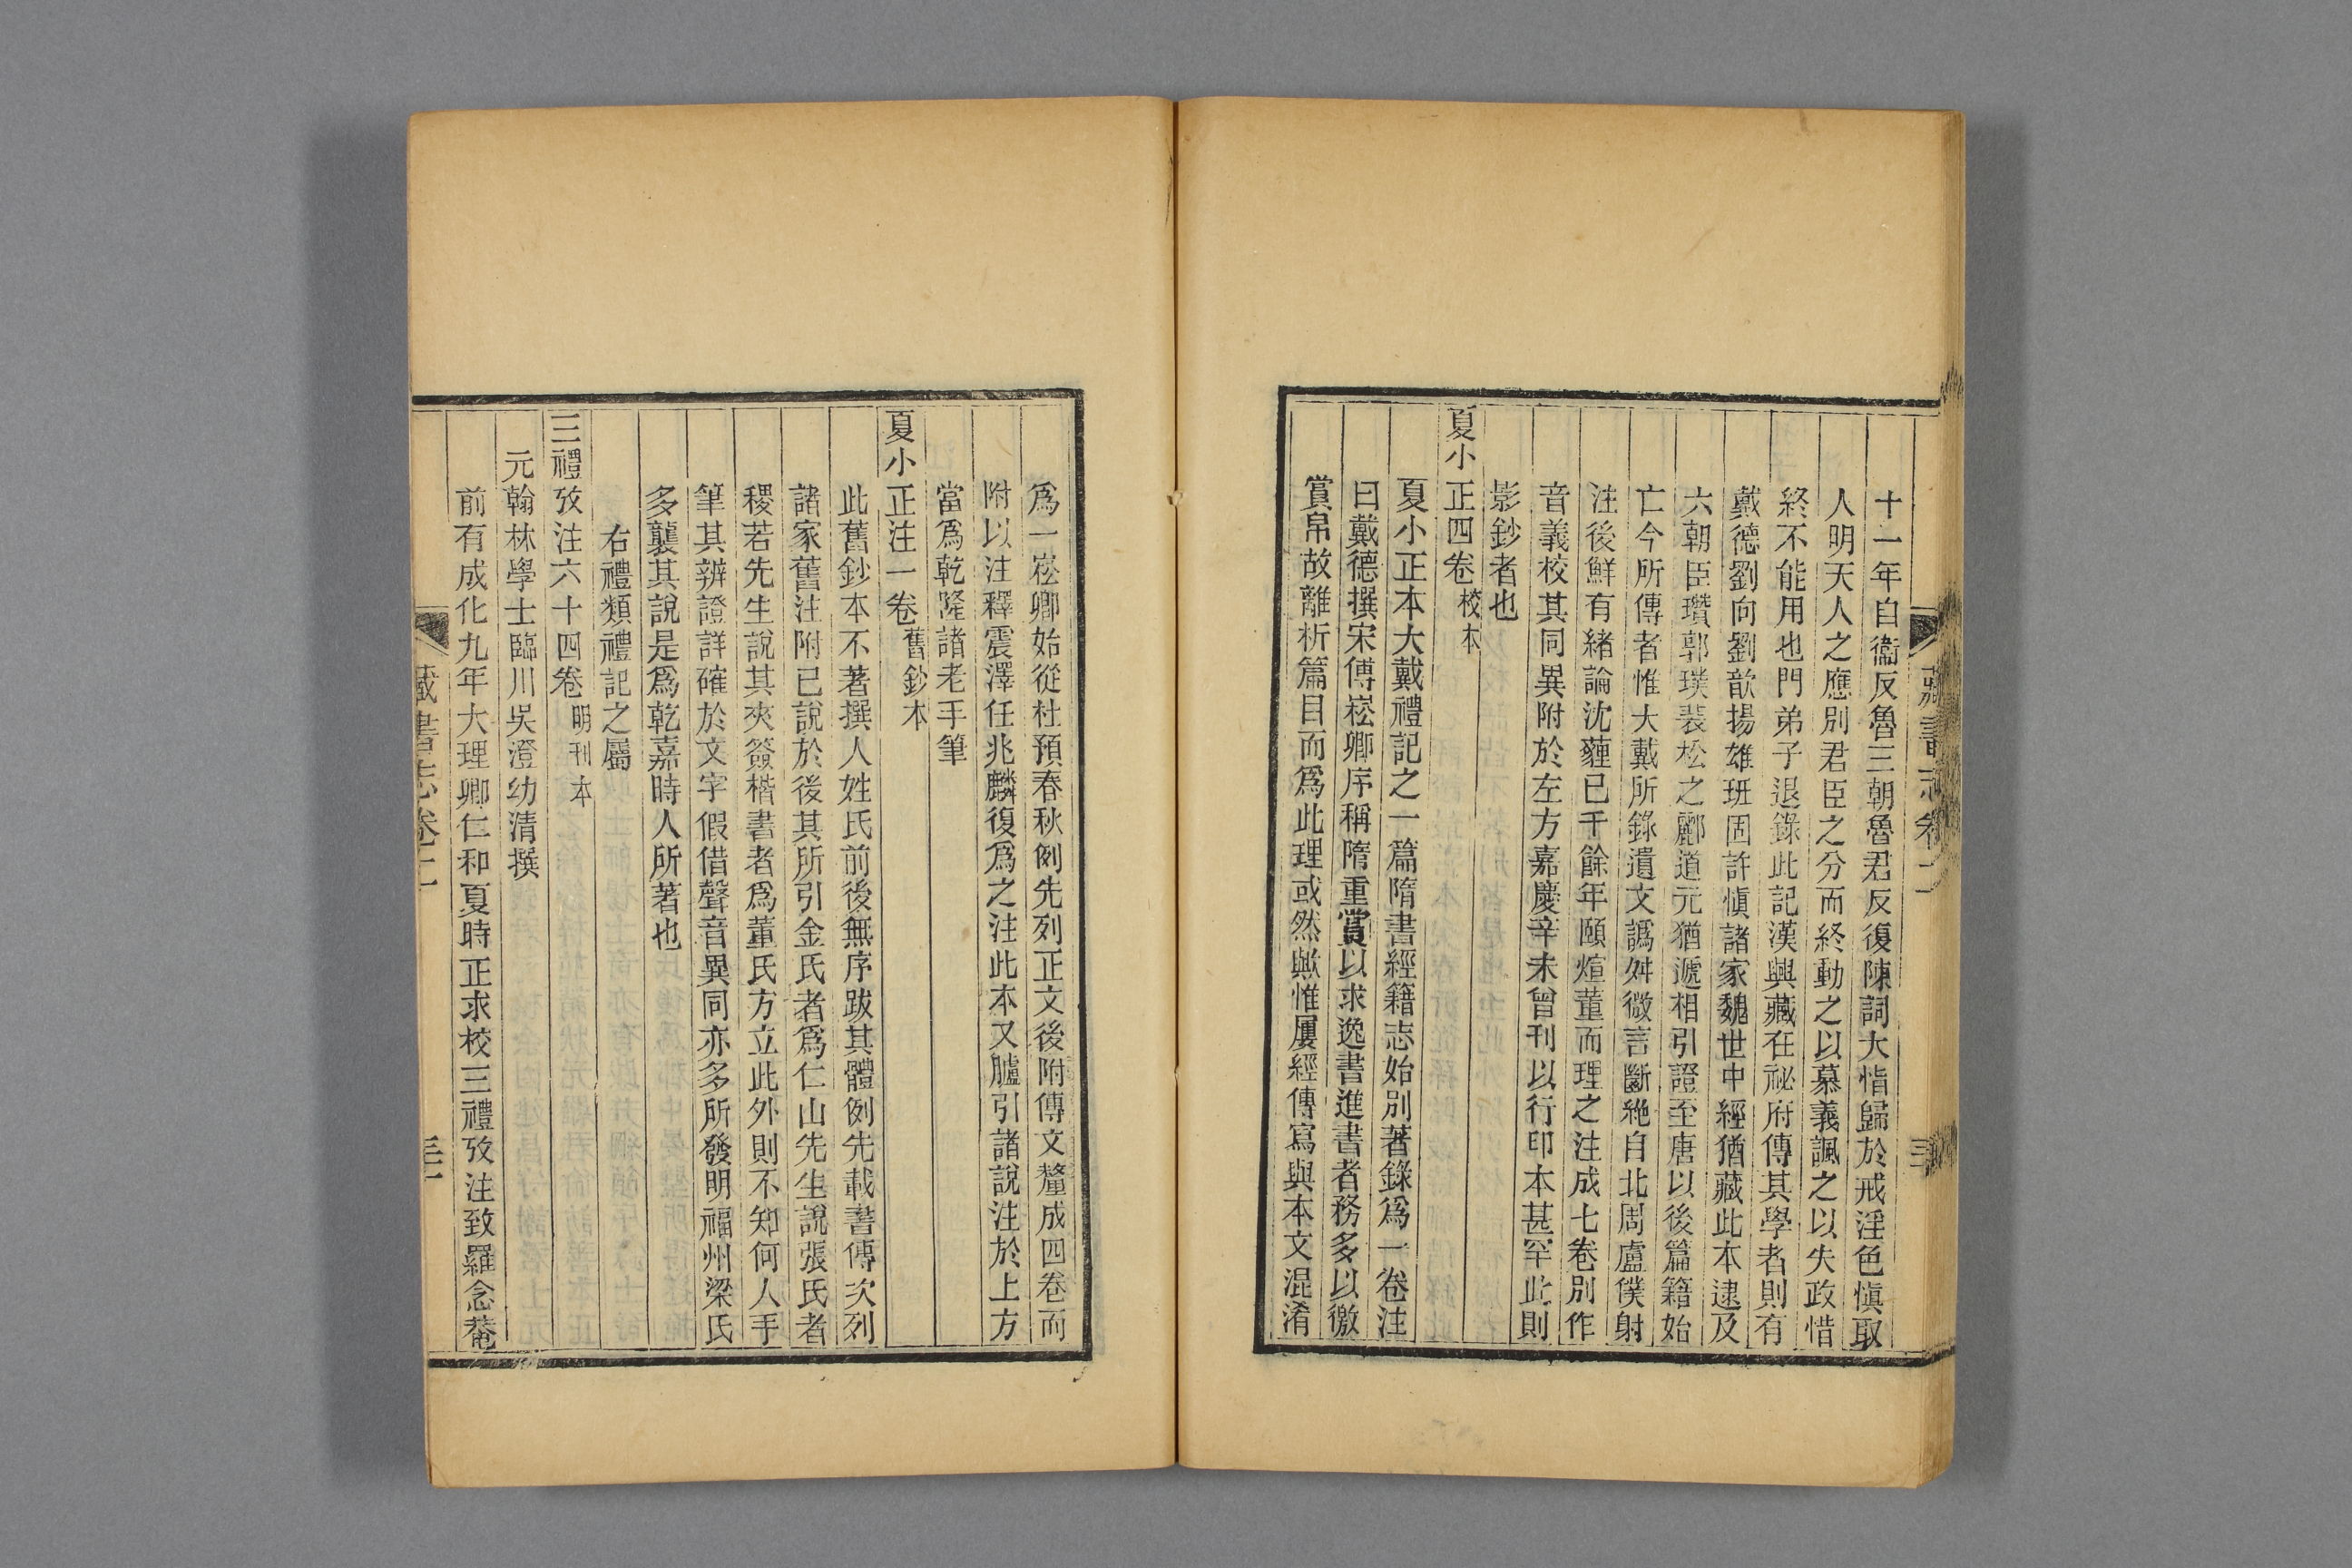 十一年自衞反魯三朝魯君反復陳詞大恉歸於戒淫色愼取
人明天人之應別君臣之分而終動之以慕義諷之以失政惜
終不能用也門弟子退錄此記漢興藏在祕府傳其學者則有
戴德劉向劉歆揚雄班固許愼諸家魏世中經猶藏此本逮及
六朝臣瓚郭璞裴松之酈道元猶遞相引證至唐以後篇籍始
亡今所傳者惟大戴所錄遺文譌舛微言斷絶自北周盧僕射
注後鮮有緒論沈薶已千餘年頤煊董而理之注成七卷別作
音義校其同異附於左方嘉慶辛未曾刊以行印本甚罕此則
影鈔者也
夏小正四卷 校本
夏小正本大戴禮記之一篇隋書經籍志始別著錄爲一卷注
曰戴德撰宋傅崧卿序稱隋重賞以求逸書進書者務多以徼
賞帛故離析篇目而爲此理或然歟惟屢經傳寫與本文混淆
爲一崧卿始從杜預春秋例先列正文後附傳文釐成四卷而
附以注釋震澤任兆麟復爲之注此本又臚引諸說注於上方
當爲乾隆諸老手筆
夏小正注一卷 舊鈔本
此舊鈔本不著撰人姓氏前後無序跋其體例先載書傳次列
諸家舊注附已說於後其所引金氏者爲仁山先生說張氏者
稷若先生說其夾簽楷書者爲董氏方立此外則不知何人手
筆其辨證詳確於文字假借聲音異同亦多所發明福州梁氏
多襲其說是爲乾嘉時人所著也
右禮類禮記之屬
三禮攷注六十四卷 明刊本
元翰林學士臨川吳澄幼清撰
前有成化九年大理卿仁和夏時正求校三禮攷注致羅念菴
藏書志卷二